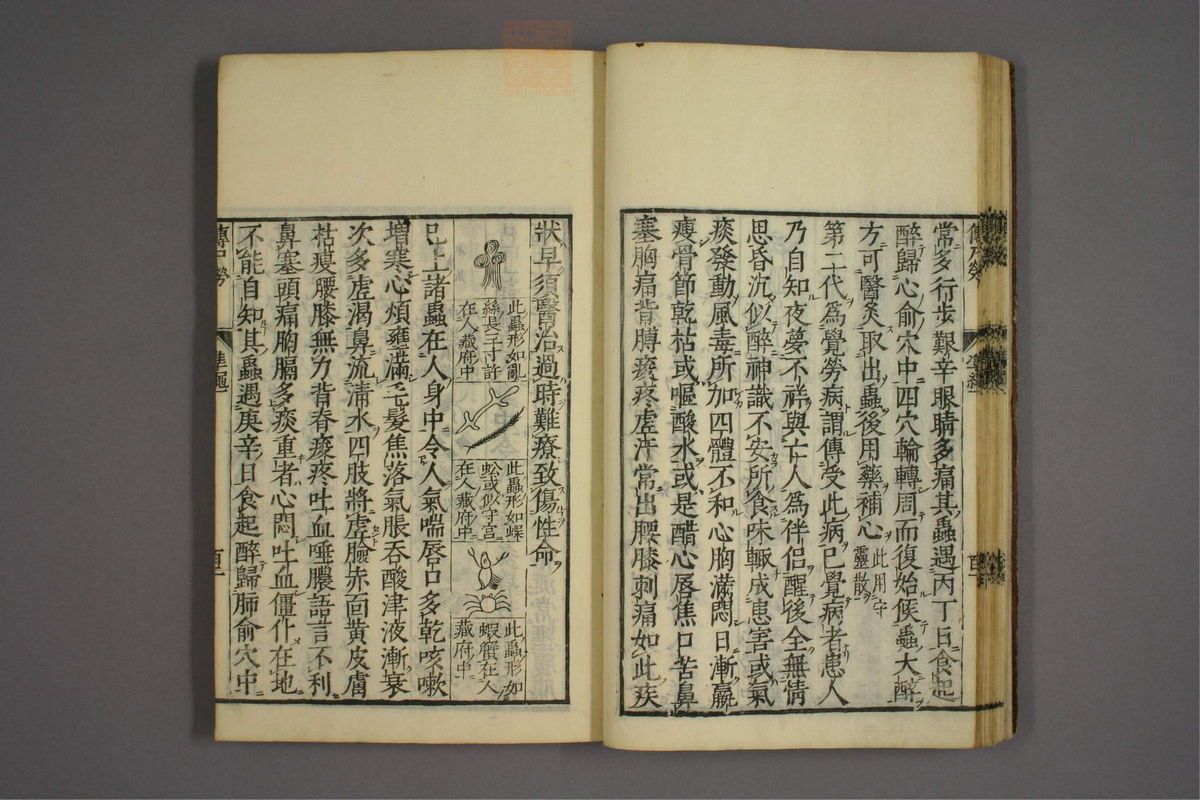 常多行步艱辛眼睛多痛其蟲遇丙丁日食起
醉歸心俞穴中四穴輪轉周而復始候蟲大醉
方可醫灸取出蟲後用藥補心此用守
靈散
第二代為覺勞病謂傳受此病已覺病者患人
乃自知夜夢不祥與亡人為伴侶醒後全無情
思昏沉似醉神識不安所食味輙成患害或氣
痰發動風毒所加四體不和心胸滿悶日漸羸
瘦骨節乾枯或嘔酸水或是醋心唇焦口苦鼻
塞胸痛背膊痠疼虛汗常出腰膝刺痛如此疾
狀早須醫治過時難療致傷性命
此蟲形如亂
絲長三寸許
在人臟府中
此蟲形如蝶
蚣或似守宮
在人臟府中
此蟲形如
蝦蟹在人
藏府中
已上諸蟲在人身中令人氣喘唇口多乾咳嗽
增寒心煩壅滿毛髮焦落氣脹吞酸津液漸衰
次多虛渴鼻流清水四肢將虛臉赤面黃皮膚
枯瘦腰膝無力背脊痠疼吐血唾膿語言不利
鼻塞頭痛胸膈多痰重者心悶吐血僵仆在地
不能自知其蟲遇庚辛日食起醉歸肺俞穴中